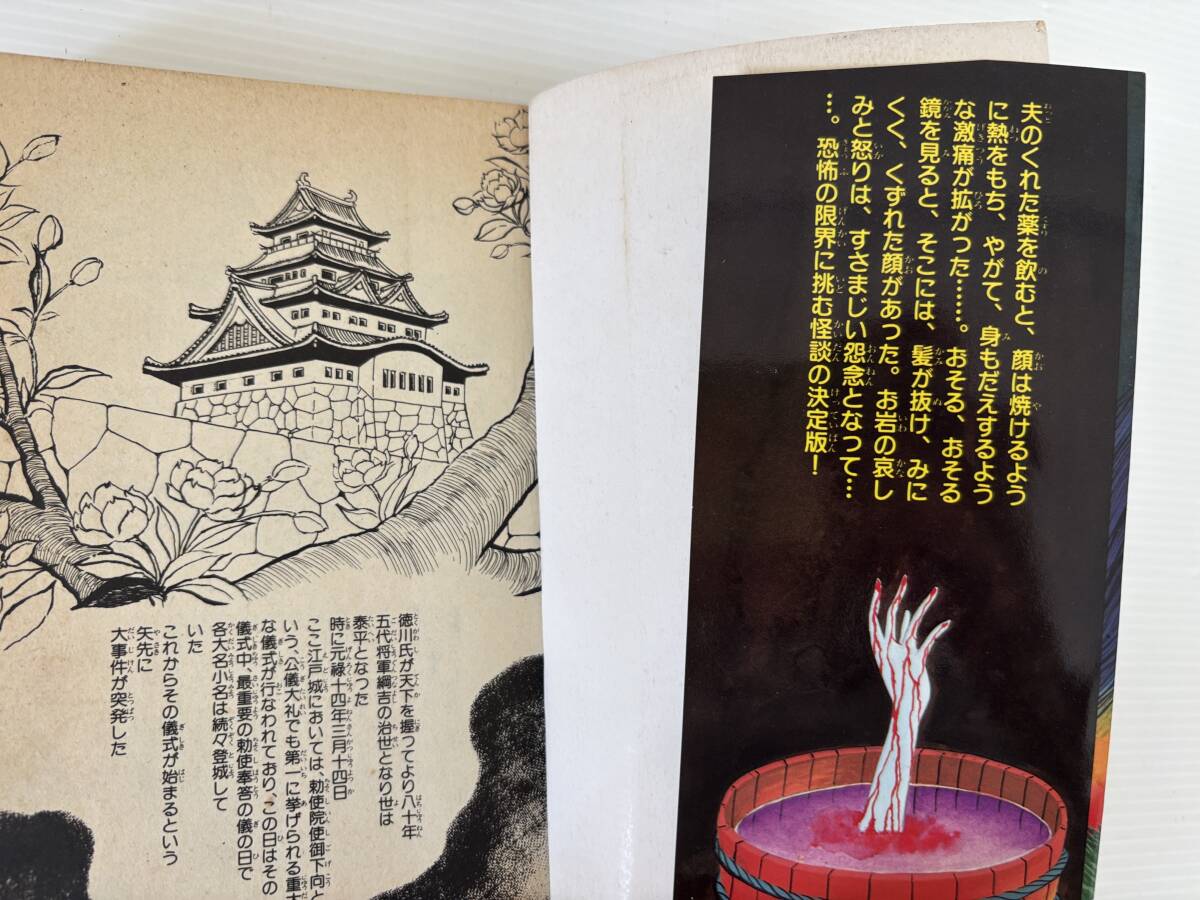 夫のくれた薬を飲むと、顔は焼けるよう
に熱をもち、やがて、身もだえするよう
な激痛が拡がった……。おそる、おそる
鏡を見ると、そこには、髪が抜け、みに
くく、くずれた顔があった。お岩の哀し
みと怒りは、すさまじい怨念となって…
…。恐怖の限界に挑む怪談の決定版！
徳川氏が天下を握つてより八十年
五代将軍綱吉の治世となり世は
泰平となつた
時に元禄十四年三月十四日
ここ江戸城においては、勅使院使御下向と
いう、公儀大礼でも第一に挙げられる重大
な儀式が行なわれており、この日はその
儀式中、最重要の勅使奉答の儀の日で
各大名小名は続々登城して
いた
これからその儀式が始まるという
矢先に
大事件が突発した